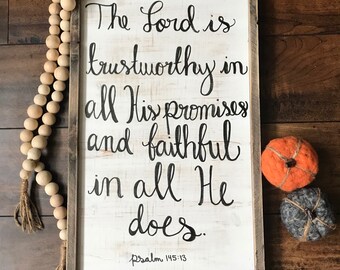 The Lord is
trustworthy in
all His promises
and faithful
in all He
does.
psalm 145:13